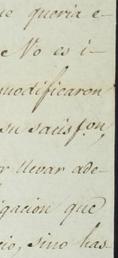 ue queria e-
e Vo es i-
modificaron
su satisfon,
r llevar ade-
igacion que
cio, sino has